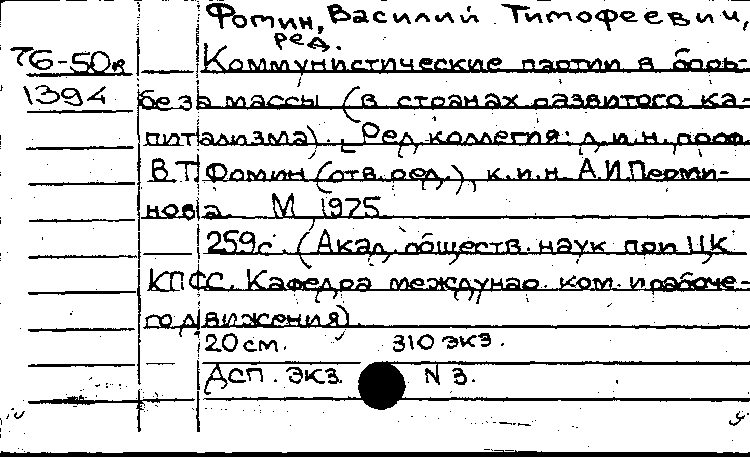 Фомин, Василий Тимофеевич,
ред.
76-50к Коммунистические партии в борь-
1394 бе за массы (в странах развитого ка-
питализма). [Ред. коллегия: д.и.н. проф.
В.Т. Фомин (отв. ред.), к.и.н. А.И. Перми-
нова. М, 1975.
259с. (Акад. обществ. наук при ЦК
КПСС. Кафедра междунар. ком. и рабоче-
го движения).
20см. 310 экз.
Дсп. экз. N 3.